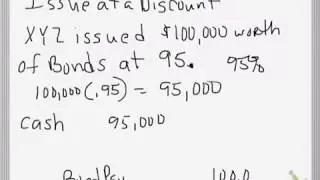 Issue at a Discount
XYZ issued $100,000 worth
of Bonds at 95. 95%
100,000 (.95) = 95,000
cash 95,000